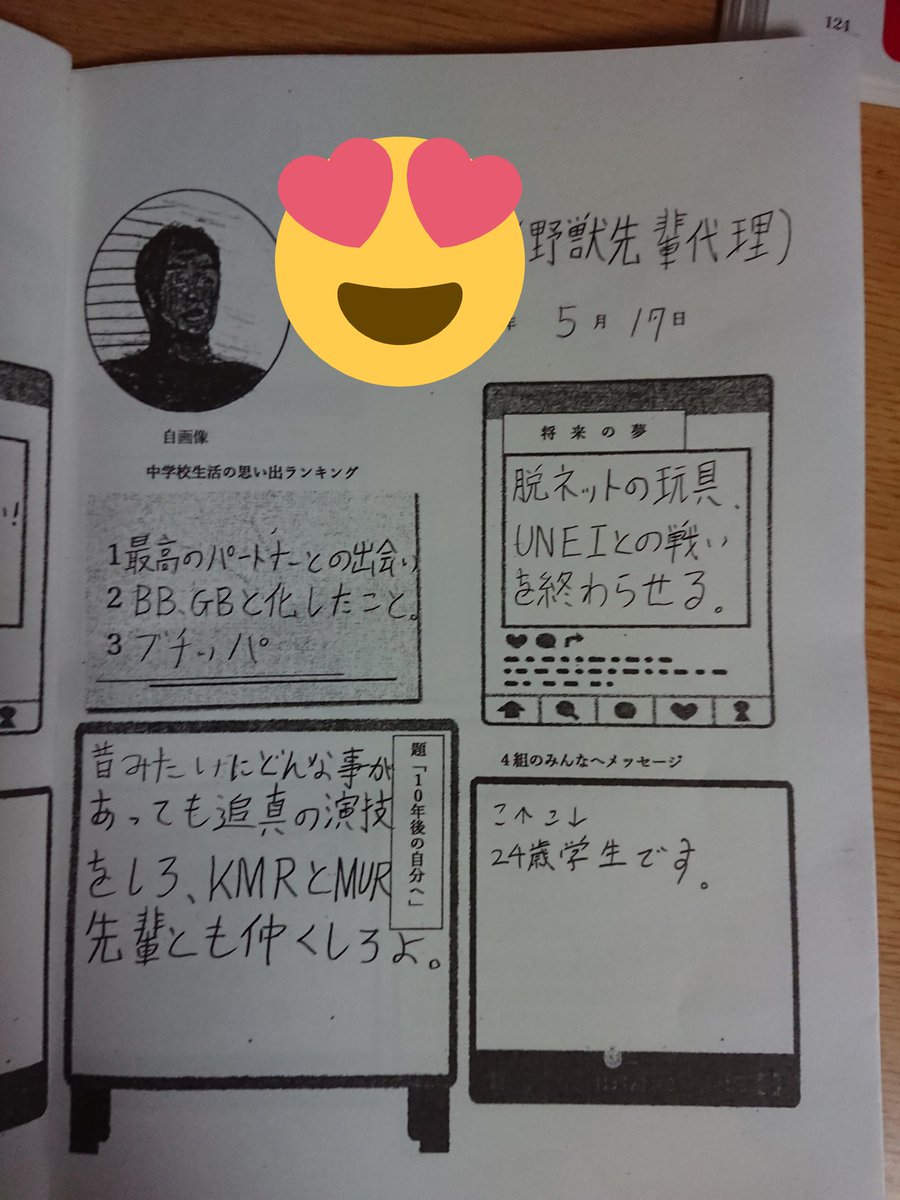 124
(野獣先輩代理)
年 5月17日
自画像
中学校生活の思い出ランキング
1最高のパートナーとの出会い
2 BB、GBと化したこと。
3 ブチッパ
将来の夢
脱ネットの玩具、
UNEIとの戦い
を終わらせる。
題「10年後の自分へ」
昔みたいにどんな事が
あっても追真の演技
をしろ、KMRとMUR
先輩とも仲くしろよ。
4組のみんなへメッセージ
こ↑こ↓
24歳学生です。